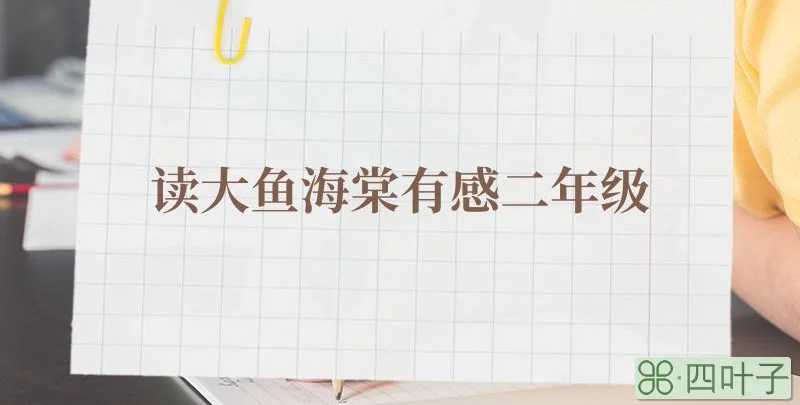 读大鱼海棠有感二年级
四叶子